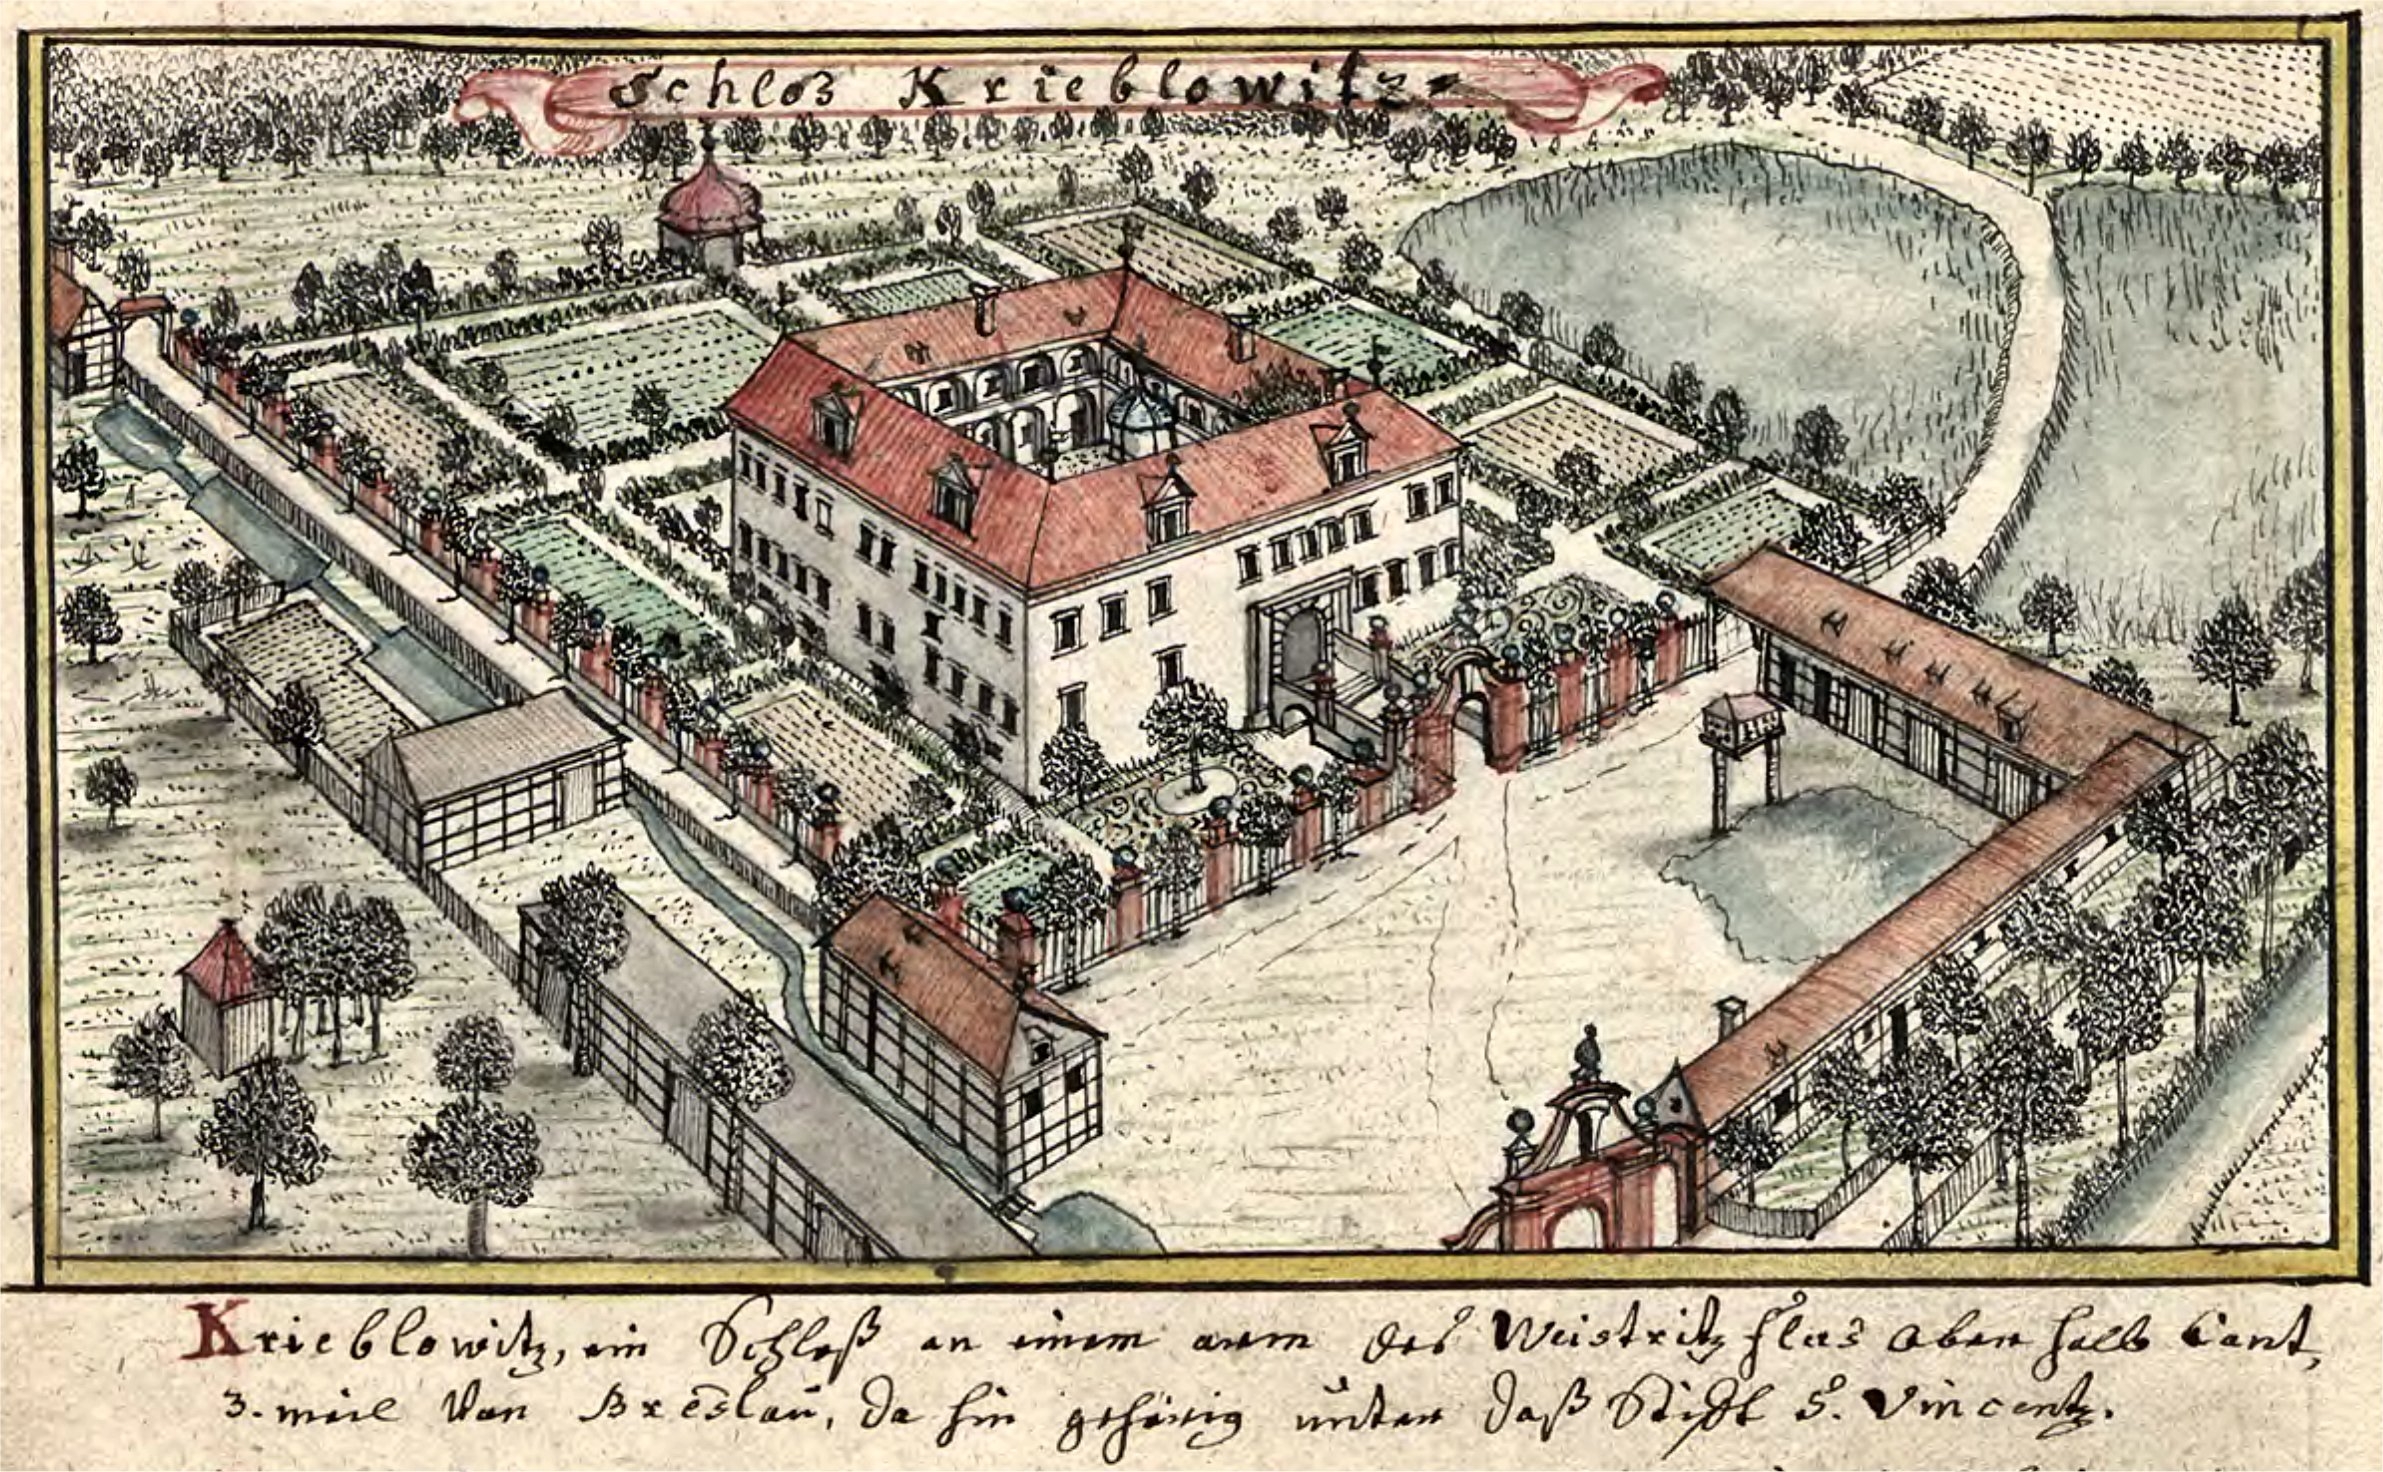 Schloß Krieblowitz
Krieblowitz, ein Schloß an einem arm des Weistritz flus oberhalb Cant,
3. meil von Breslau, da hin gehörig unter daß Stift S. Vincentz.